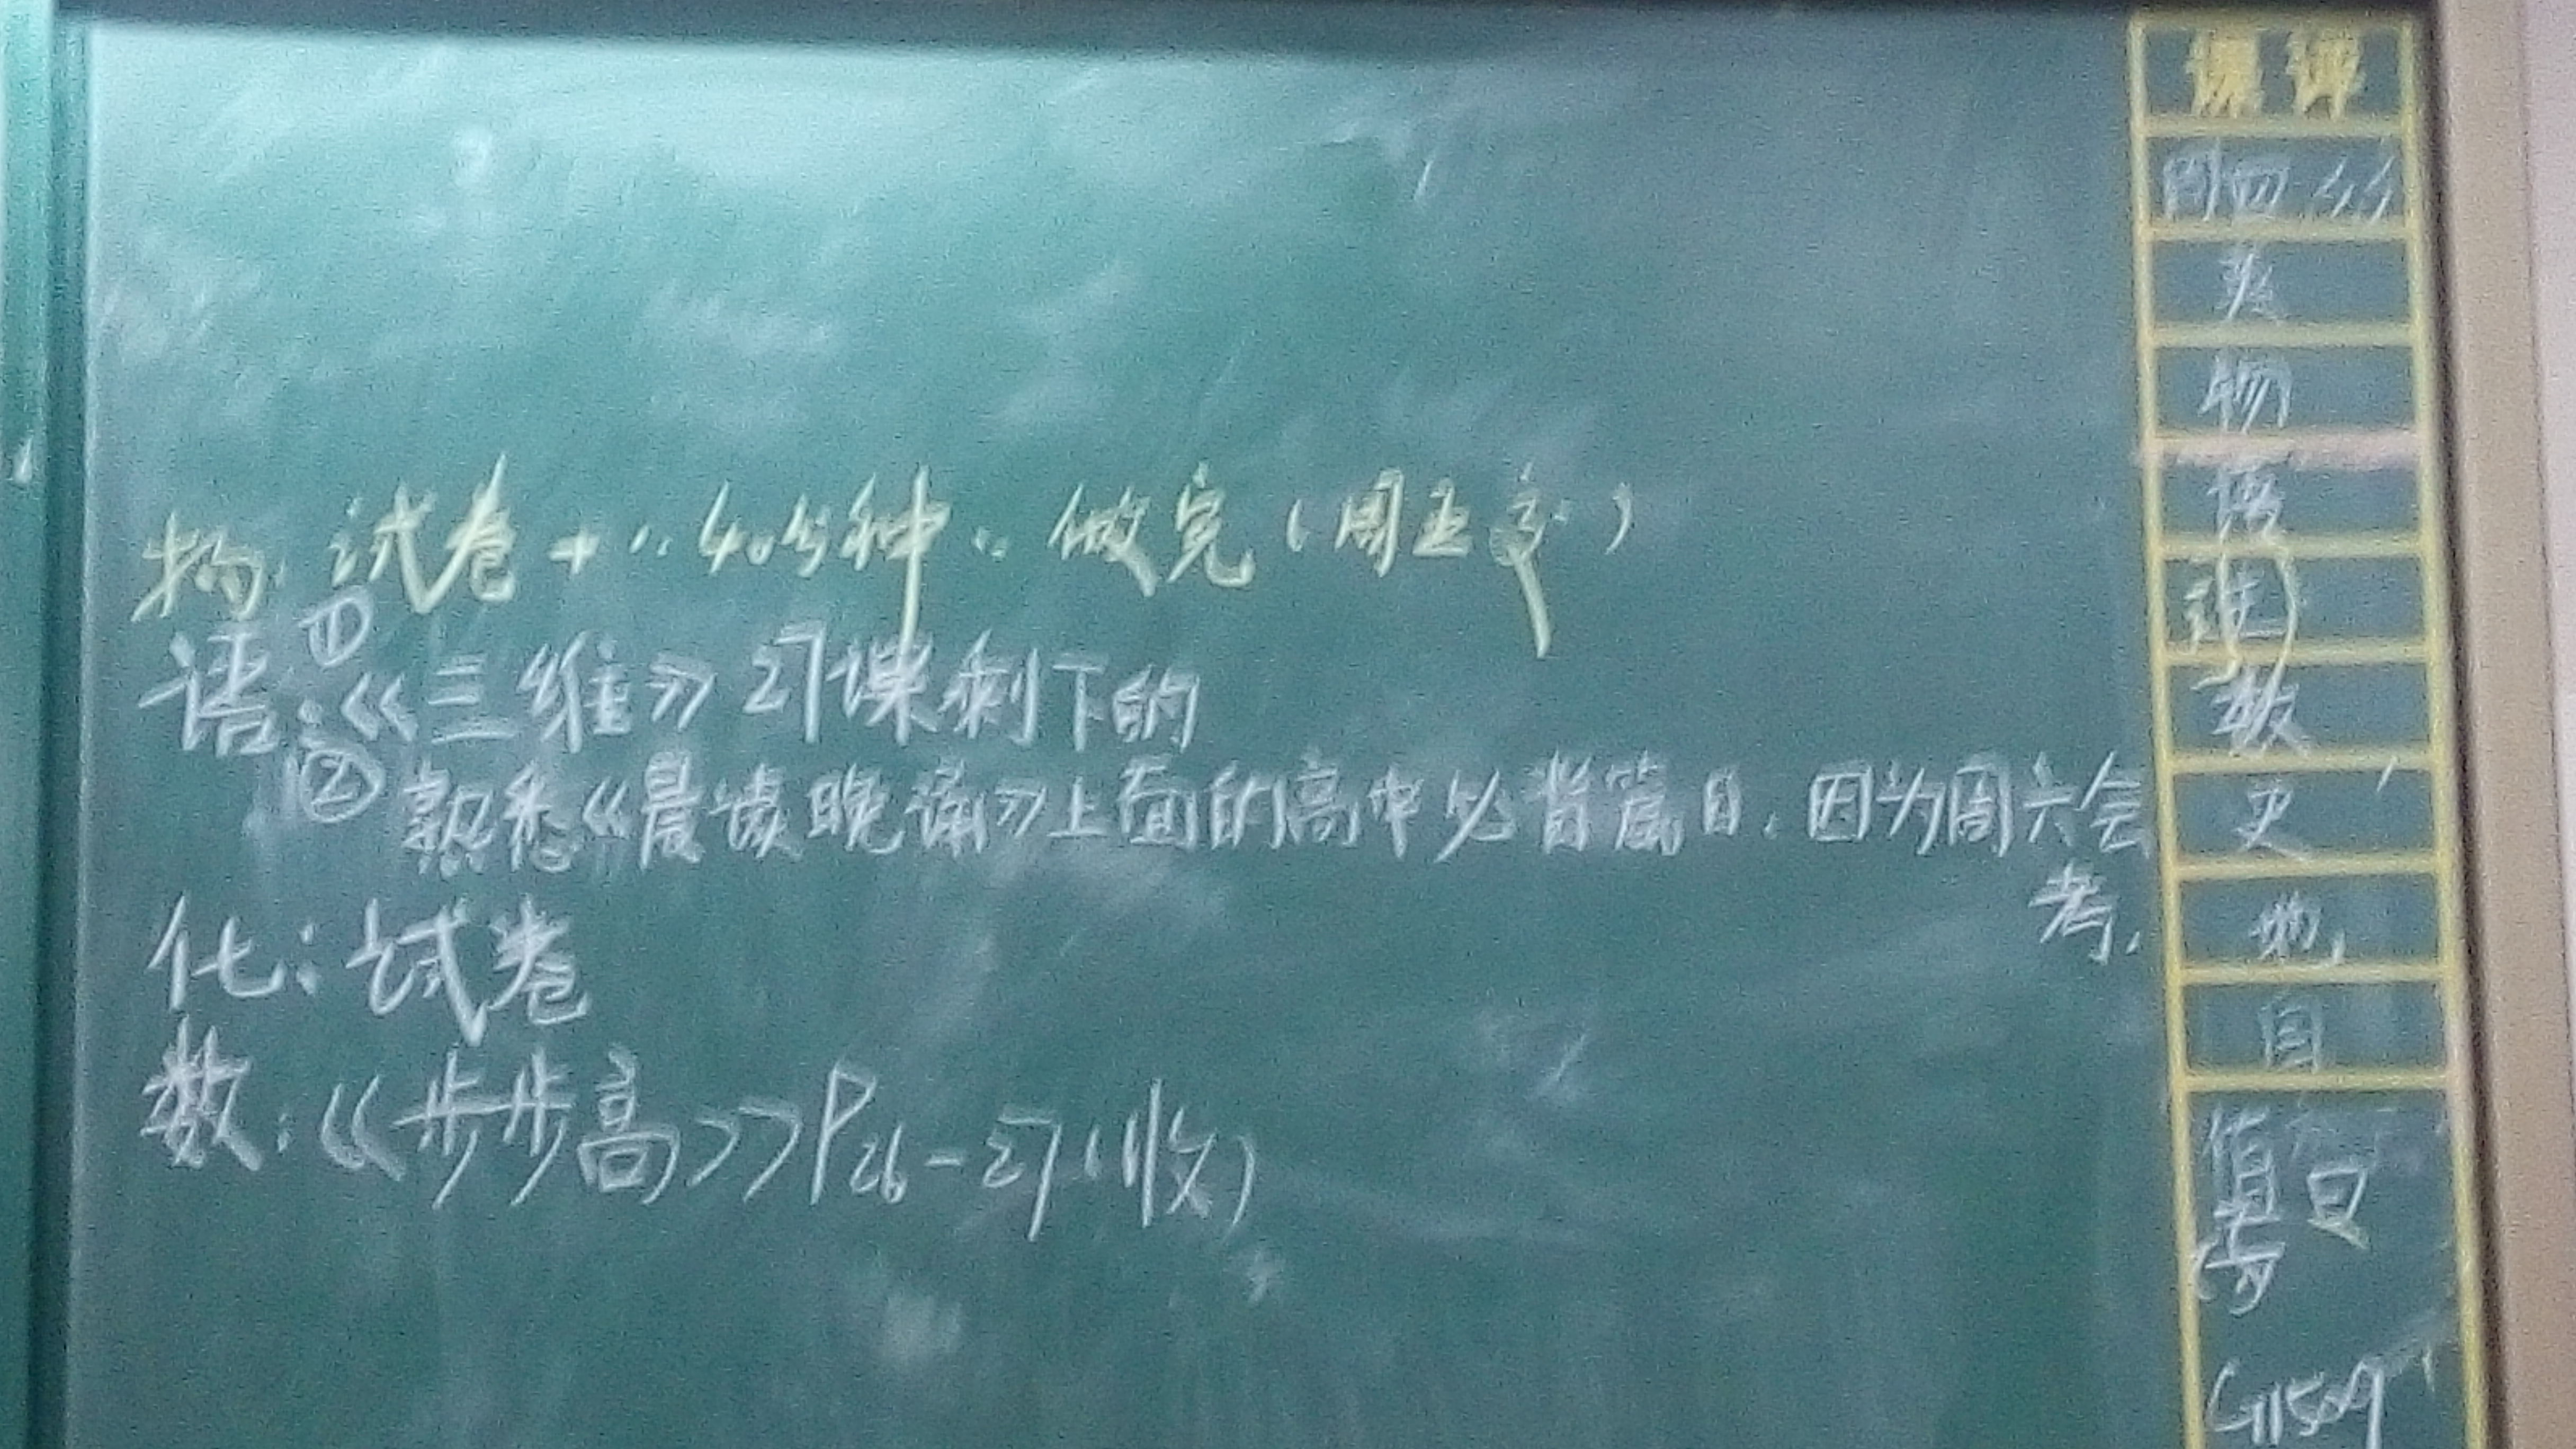 物: 试卷 + “40分种”做完(周五交)
语: ①《三维》27课剩下的
②熟悉《晨读晚诵》上面的高中必背篇目.因为周六会
考.
化: 试卷
数: 《步步高》P26-27(收)
课课
周四
英
物
语
数
史
地
自
值日
G1509